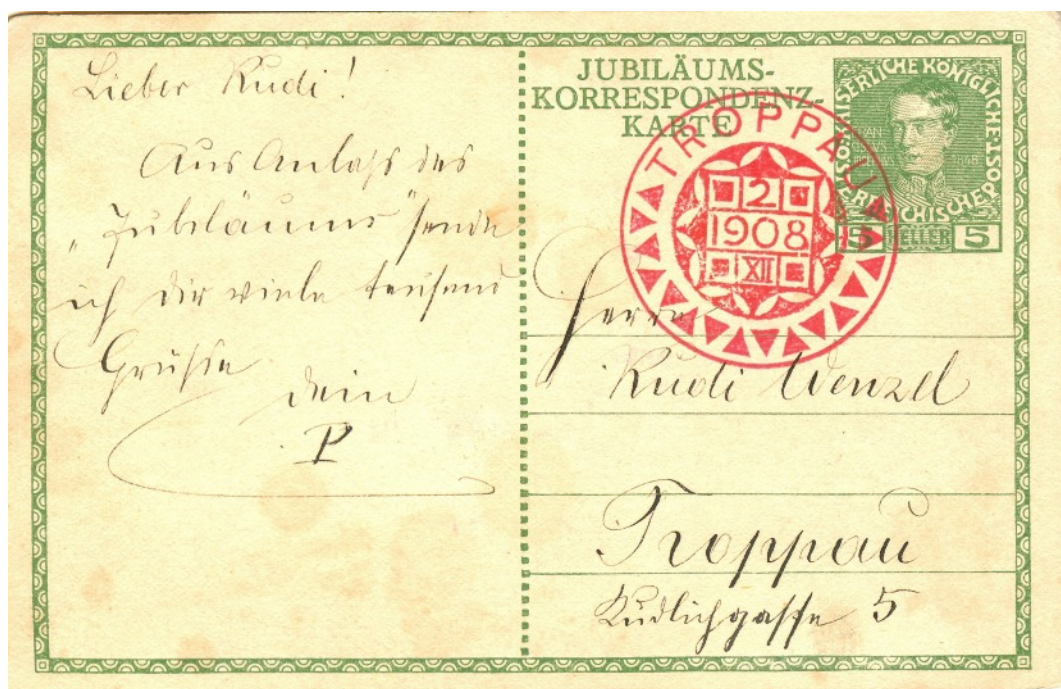 Lieber Rudi!
Aus Anlaß des
„Jubiläums" sende
ich dir viele tausend
Grüße
dein
P
JUBILÄUMS-
KORRESPONDENZ-
KARTE
KAISERLICHE KÖNIGLICHE ÖSTERREICHISCHE POST
1848
5 HELLER 5
TROPPAU
2
1908
XII
Herrn
Rudi Wenzel
Troppau
Kudlichgasse 5